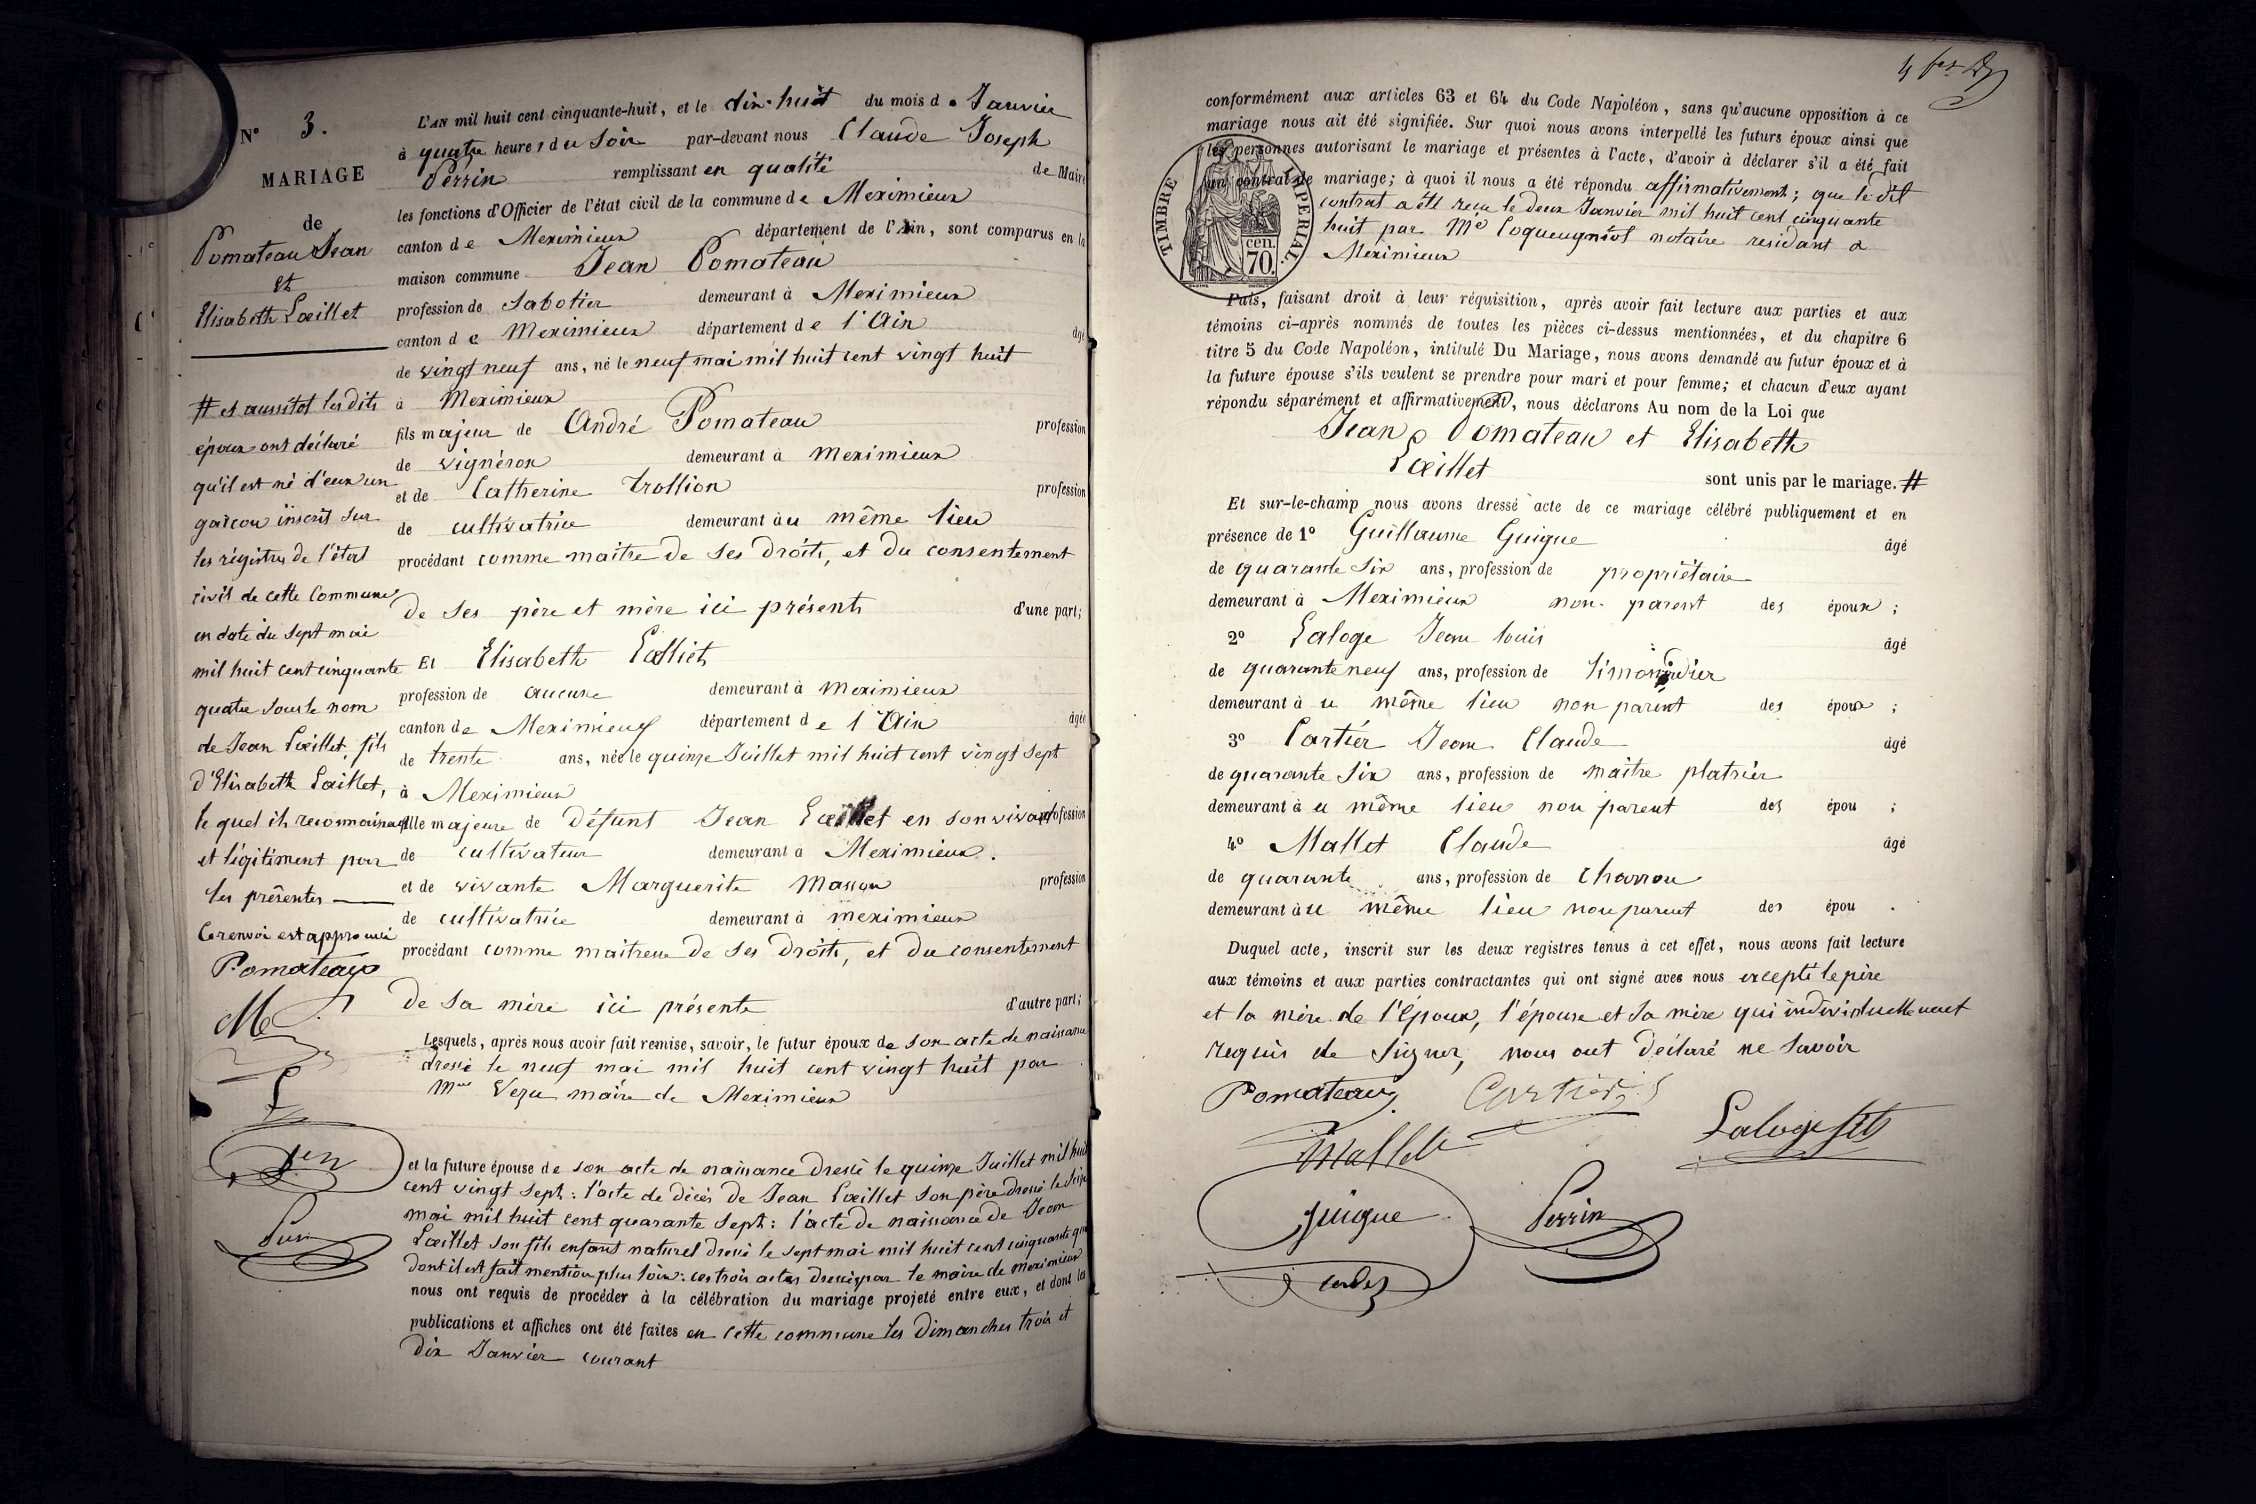 N° 3.
MARIAGE
de
Pomateau Jean
et
Elisabeth Lœillet
# et aussitot les dits
époux ont déclaré
qu'il est né d'eux un
garcon inscrit sur
les régistres de l'état
civil de cette Commune
en date du sept mai
mil huit cent cinquante
quatre sous le nom
de Jean Lœillet, fils
d'Elisabeth Lœillet,
le quel ils reconnaissent
et légitiment par
les présentes
Ce renvoi est approuvé
Pomateau
L'AN mil huit cent cinquante-huit, et le dix-huit du mois de Janvier
à quatre heures du Soir par-devant nous Claude Joseph
Perrin remplissant en qualité de Maire
les fonctions d'Officier de l'état civil de la commune de Meximieux
canton de Meximieux département de l'Ain, sont comparus en la
maison commune Jean Pomateau
profession de Sabotier demeurant à Meximieux
canton de Meximieux département de l'Ain âgé
de vingt neuf ans, né le neuf mai mil huit cent vingt huit
à Meximieux
fils majeur de André Pomateau profession
de vignéron demeurant à Meximieux
et de Catherine Trollion profession
de cultivatrice demeurant au même lieu
procédant comme maître de ses droits, et du consentement
de ses père et mère ici présents d'une part;
Et Elisabeth Lœlliet
profession de aucune demeurant à Meximieux
canton de Meximieux département de l'Ain âgée
de trente ans, née le quinze Juillet mil huit cent vingt sept
à Meximieux
fille majeure de Défunt Jean Lœillet en son vivant profession
de cultivateur demeurant à Meximieux.
et de vivante Marguerite Masson profession
de cultivatrice demeurant à meximieux
procédant comme maitresse de ses droits, et du consentement
de sa mère ici présente d'autre part;
Lesquels, après nous avoir fait remise, savoir, le futur époux de son acte de naissance
dressé le neuf mai mil huit cent vingt huit par
Vezu maire de Meximieux
et la future épouse de son acte de naissance dressé le quinze Juillet mil huit
cent vingt sept: l'acte de décès de Jean Lœillet son père dressé le
mai mil huit cent quarante sept: l'acte de naissance de Jean
Lœillet son fils enfant naturel dressé le sept mai mil huit cent cinquante
dont il est fait mention plus loin: ces trois actes dressés par le maire de meximieux
nous ont requis de procéder à la célébration du mariage projeté entre eux, et dont les
publications et affiches ont été faites en cette commune les Dimanches trois et
dix Janvier courant
4
conformément aux articles 63 et 64 du Code Napoléon, sans qu'aucune opposition à ce
mariage nous ait été signifiée. Sur quoi nous avons interpellé les futurs époux ainsi que
les personnes autorisant le mariage et présentes à l'acte, d'avoir à déclarer s'il a été fait
un contrat de mariage; à quoi il nous a été répondu affirmativement; que le dit
contrat a été recu le deux Janvier mil huit cent cinquante
huit par Me Coqueugniot notaire residant à
Meximieux
TIMBRE IMPERIAL.
cen.
70.
Puis, faisant droit à leur réquisition, après avoir fait lecture aux parties et aux
témoins ci-après nommés de toutes les pièces ci-dessus mentionnées, et du chapitre 6
titre 5 du Code Napoléon, intitulé Du Mariage, nous avons demandé au futur époux et à
la future épouse s'ils veulent se prendre pour mari et pour femme; et chacun d'eux ayant
répondu séparément et affirmativement, nous déclarons Au nom de la Loi que
Jean Pomateau et Elisabeth
Lœillet
sont unis par le mariage. #
Et sur-le-champ nous avons dressé acte de ce mariage célébré publiquement et en
présence de 1° Guillaume Guigue âgé
de quarante Six ans, profession de propriétaire
demeurant à Meximieux non parent des époux ;
2° Laloge Jean louis âgé
de quarante neuf ans, profession de
demeurant à u même lieu non parent des époux ;
3° Cartier Jean Claude âgé
de quarante Six ans, profession de maître platrier
demeurant à u même lieu non parent des épou ;
4° Mallet Claude âgé
de quarante ans, profession de Charron
demeurant à u même lieu non parent des épou .
Duquel acte, inscrit sur les deux registres tenus à cet effet, nous avons fait lecture
aux témoins et aux parties contractantes qui ont signé avec nous excepté le père
et la mère de l'Epoux, l'épouse et sa mère qui individuellement
requis de signer, nous ont déclaré ne savoir
Pomateau Cartier
Mallet Laloge fils
Guigue Perrin